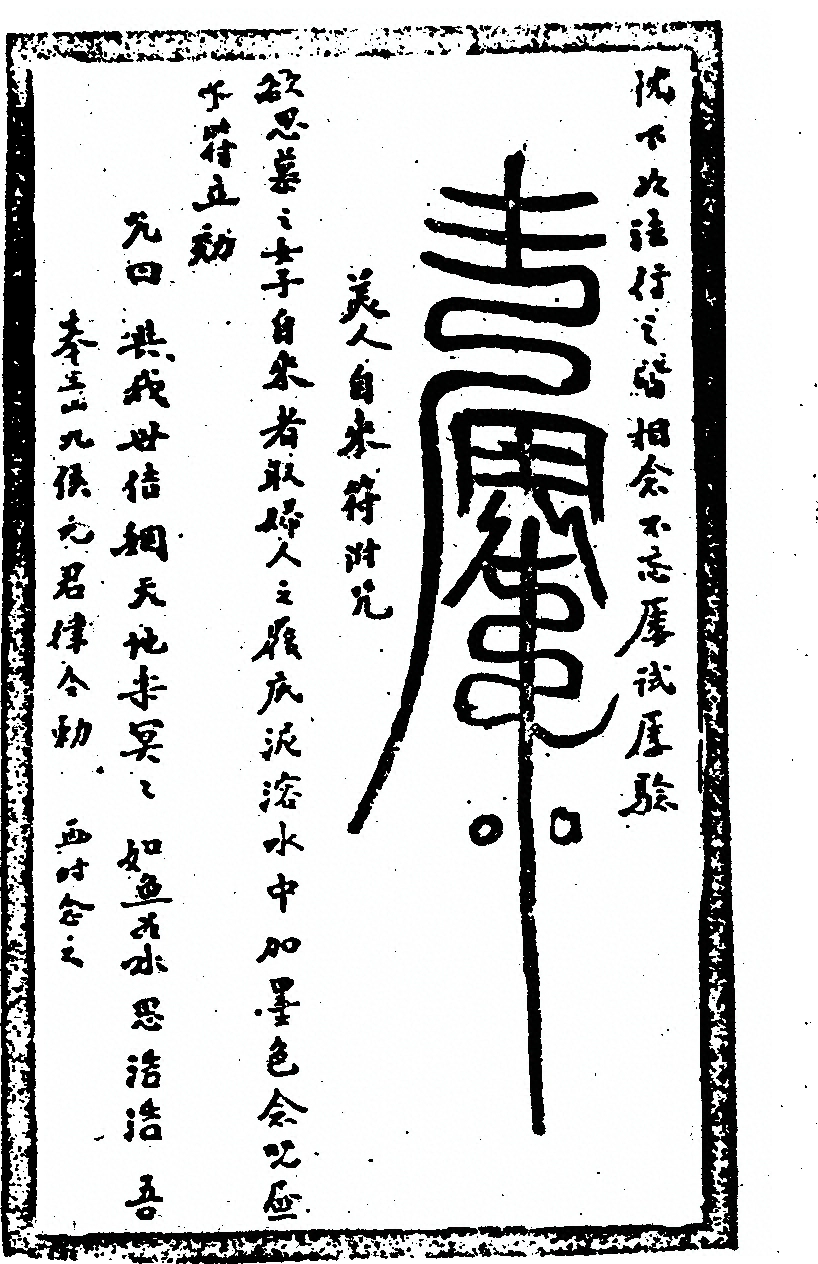 枕下次法行之皆相念不忘屢試屢驗
美人自來符附咒
欲思慕之女子自來者取婦人之履底泥溶水中加墨色念咒画
下符立勅
咒曰 與我世佶姻天地末冥々 如魚水思浩浩 吾
奉 山九侯元君律令勅 酉时念之